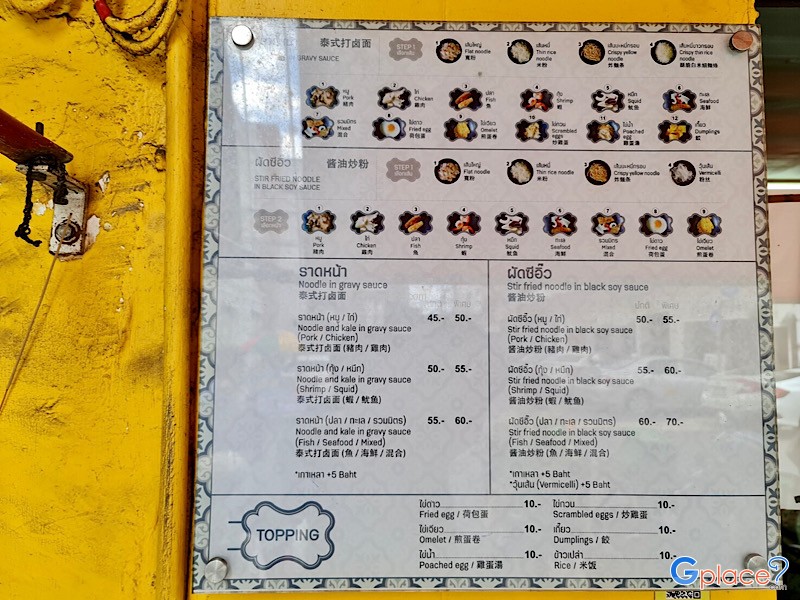 泰式打卤面
GRAVY SAUCE
STEP 1
เส้นใหญ่
Flat noodle
เส้นหมี่
Thin rice noodle
米粉
เส้นบะหมี่กรอบ
Crispy yellow noodle
炸麵条
เส้นหมี่ขาวกรอบ
Crispy thin rice noodle
1 หมู Pork 豬肉
2 ไก่ Chicken 雞肉
3 ปลา Fish 魚
4 กุ้ง Shrimp 蝦
5 หมึก Squid 魷魚
6 ทะเล Seafood 海鮮
7 รวมมิตร Mixed 混合
8 ไข่ดาว Fried egg 荷包蛋
9 ไข่เจียว Omelet 煎蛋卷
10 ไข่กวน Scrambled eggs 炒雞蛋
11 ไข่น้ำ Poached egg 雞蛋湯
12 เกี๊ยว Dumplings 餃
ผัดซีอิ๊ว 酱油炒粉
STIR FRIED NOODLE
IN BLACK SOY SAUCE
STEP 1
1 เส้นใหญ่ Flat noodle
2 เส้นหมี่ Thin rice noodle 米粉
3 เส้นบะหมี่กรอบ Crispy yellow noodle 炸麵条
4 วุ้นเส้น Vermicelli 粉丝
STEP 2
1 หมู Pork 豬肉
2 ไก่ Chicken 雞肉
3 ปลา Fish 魚
4 กุ้ง Shrimp 蝦
5 หมึก Squid 魷魚
6 ทะเล Seafood 海鮮
7 รวมมิตร Mixed 混合
8 ไข่ดาว Fried egg 荷包蛋
9 ไข่เจียว Omelet 煎蛋卷
ราดหน้า
Noodle in gravy sauce
泰式打卤面
พิเศษ
ราดหน้า (หมู / ไก่) 45.- 50.-
Noodle and kale in gravy sauce
(Pork / Chicken)
泰式打卤面 (豬肉 / 雞肉)
ราดหน้า (กุ้ง / หมึก) 50.- 55.-
Noodle and kale in gravy sauce
(Shrimp / Squid)
泰式打卤面 (蝦 / 魷魚)
ราดหน้า (ปลา / ทะเล / รวมมิตร) 55.- 60.-
Noodle and kale in gravy sauce
(Fish / Seafood / Mixed)
泰式打卤面 (魚 / 海鮮 / 混合)
*เกาเหลา +5 Baht
ผัดซีอิ๊ว
Stir fried noodle in black soy sauce
酱油炒粉
ปกติ พิเศษ
ผัดซีอิ๊ว (หมู / ไก่) 50.- 55.-
Stir fried noodle in black soy sauce
(Pork / Chicken)
酱油炒粉 (豬肉 / 雞肉)
ผัดซีอิ๊ว (กุ้ง / หมึก) 55.- 60.-
Stir fried noodle in black soy sauce
(Shrimp / Squid)
酱油炒粉 (蝦 / 魷魚)
ผัดซีอิ๊ว (ปลา / ทะเล / รวมมิตร) 60.- 70.-
Stir fried noodle in black soy sauce
(Fish / Seafood / Mixed)
酱油炒粉 (魚 / 海鮮 / 混合)
*เกาเหลา +5 Baht
*วุ้นเส้น (Vermicelli) +5 Baht
TOPPING
ไข่ดาว 10.-
Fried egg / 荷包蛋
ไข่เจียว 10.-
Omelet / 煎蛋卷
ไข่น้ำ 10.-
Poached egg / 雞蛋湯
ไข่กวน 10.-
Scrambled eggs / 炒雞蛋
เกี๊ยว 10.-
Dumplings / 餃
ข้าวเปล่า 10.-
Rice / 米饭
Gplace
.com